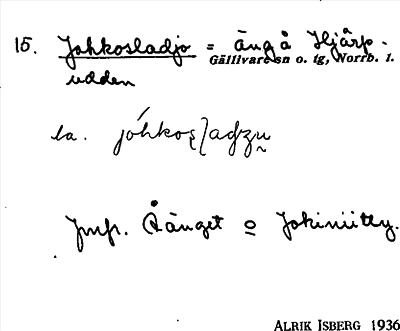 15. Johkosladjo = äng å Hjärp-
Gällivare sn o. tg, Norrb. l.
udden
la. jóhkosladzu
Jmf. Åänget o Jokiniitty.
ALRIK ISBERG 1936